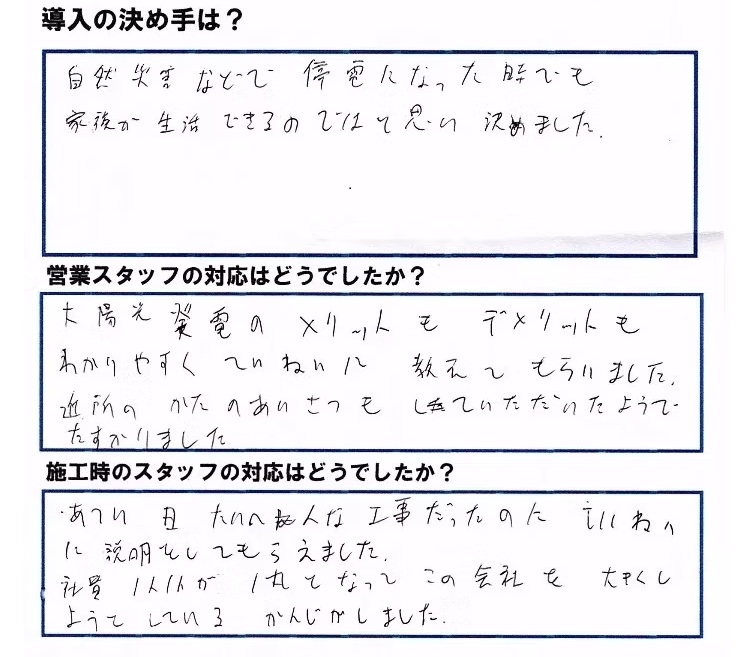 導入の決め手は？
自然災害などで 停電になった時でも
家族が生活できるのではと思い 決めました.
営業スタッフの対応はどうでしたか？
太陽光発電の メリットも デメリットも
わかりやすく ていねいに 教えてもらいました.
近所の かたのあいさつも していただいたようで
たすかりました
施工時のスタッフの対応はどうでしたか？
あつい日 たいへんな工事だったのに ていねい
に説明をしてもらえました.
社員 1人1人が 1丸となって この会社を 大きくし
ようとしている かんじがしました.